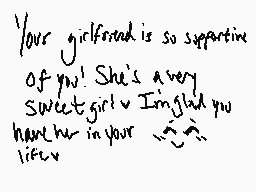 Your girlfriend is so supportive
of you! She's a very
sweet girl ♥ I'm glad you
have her in your
life ♥